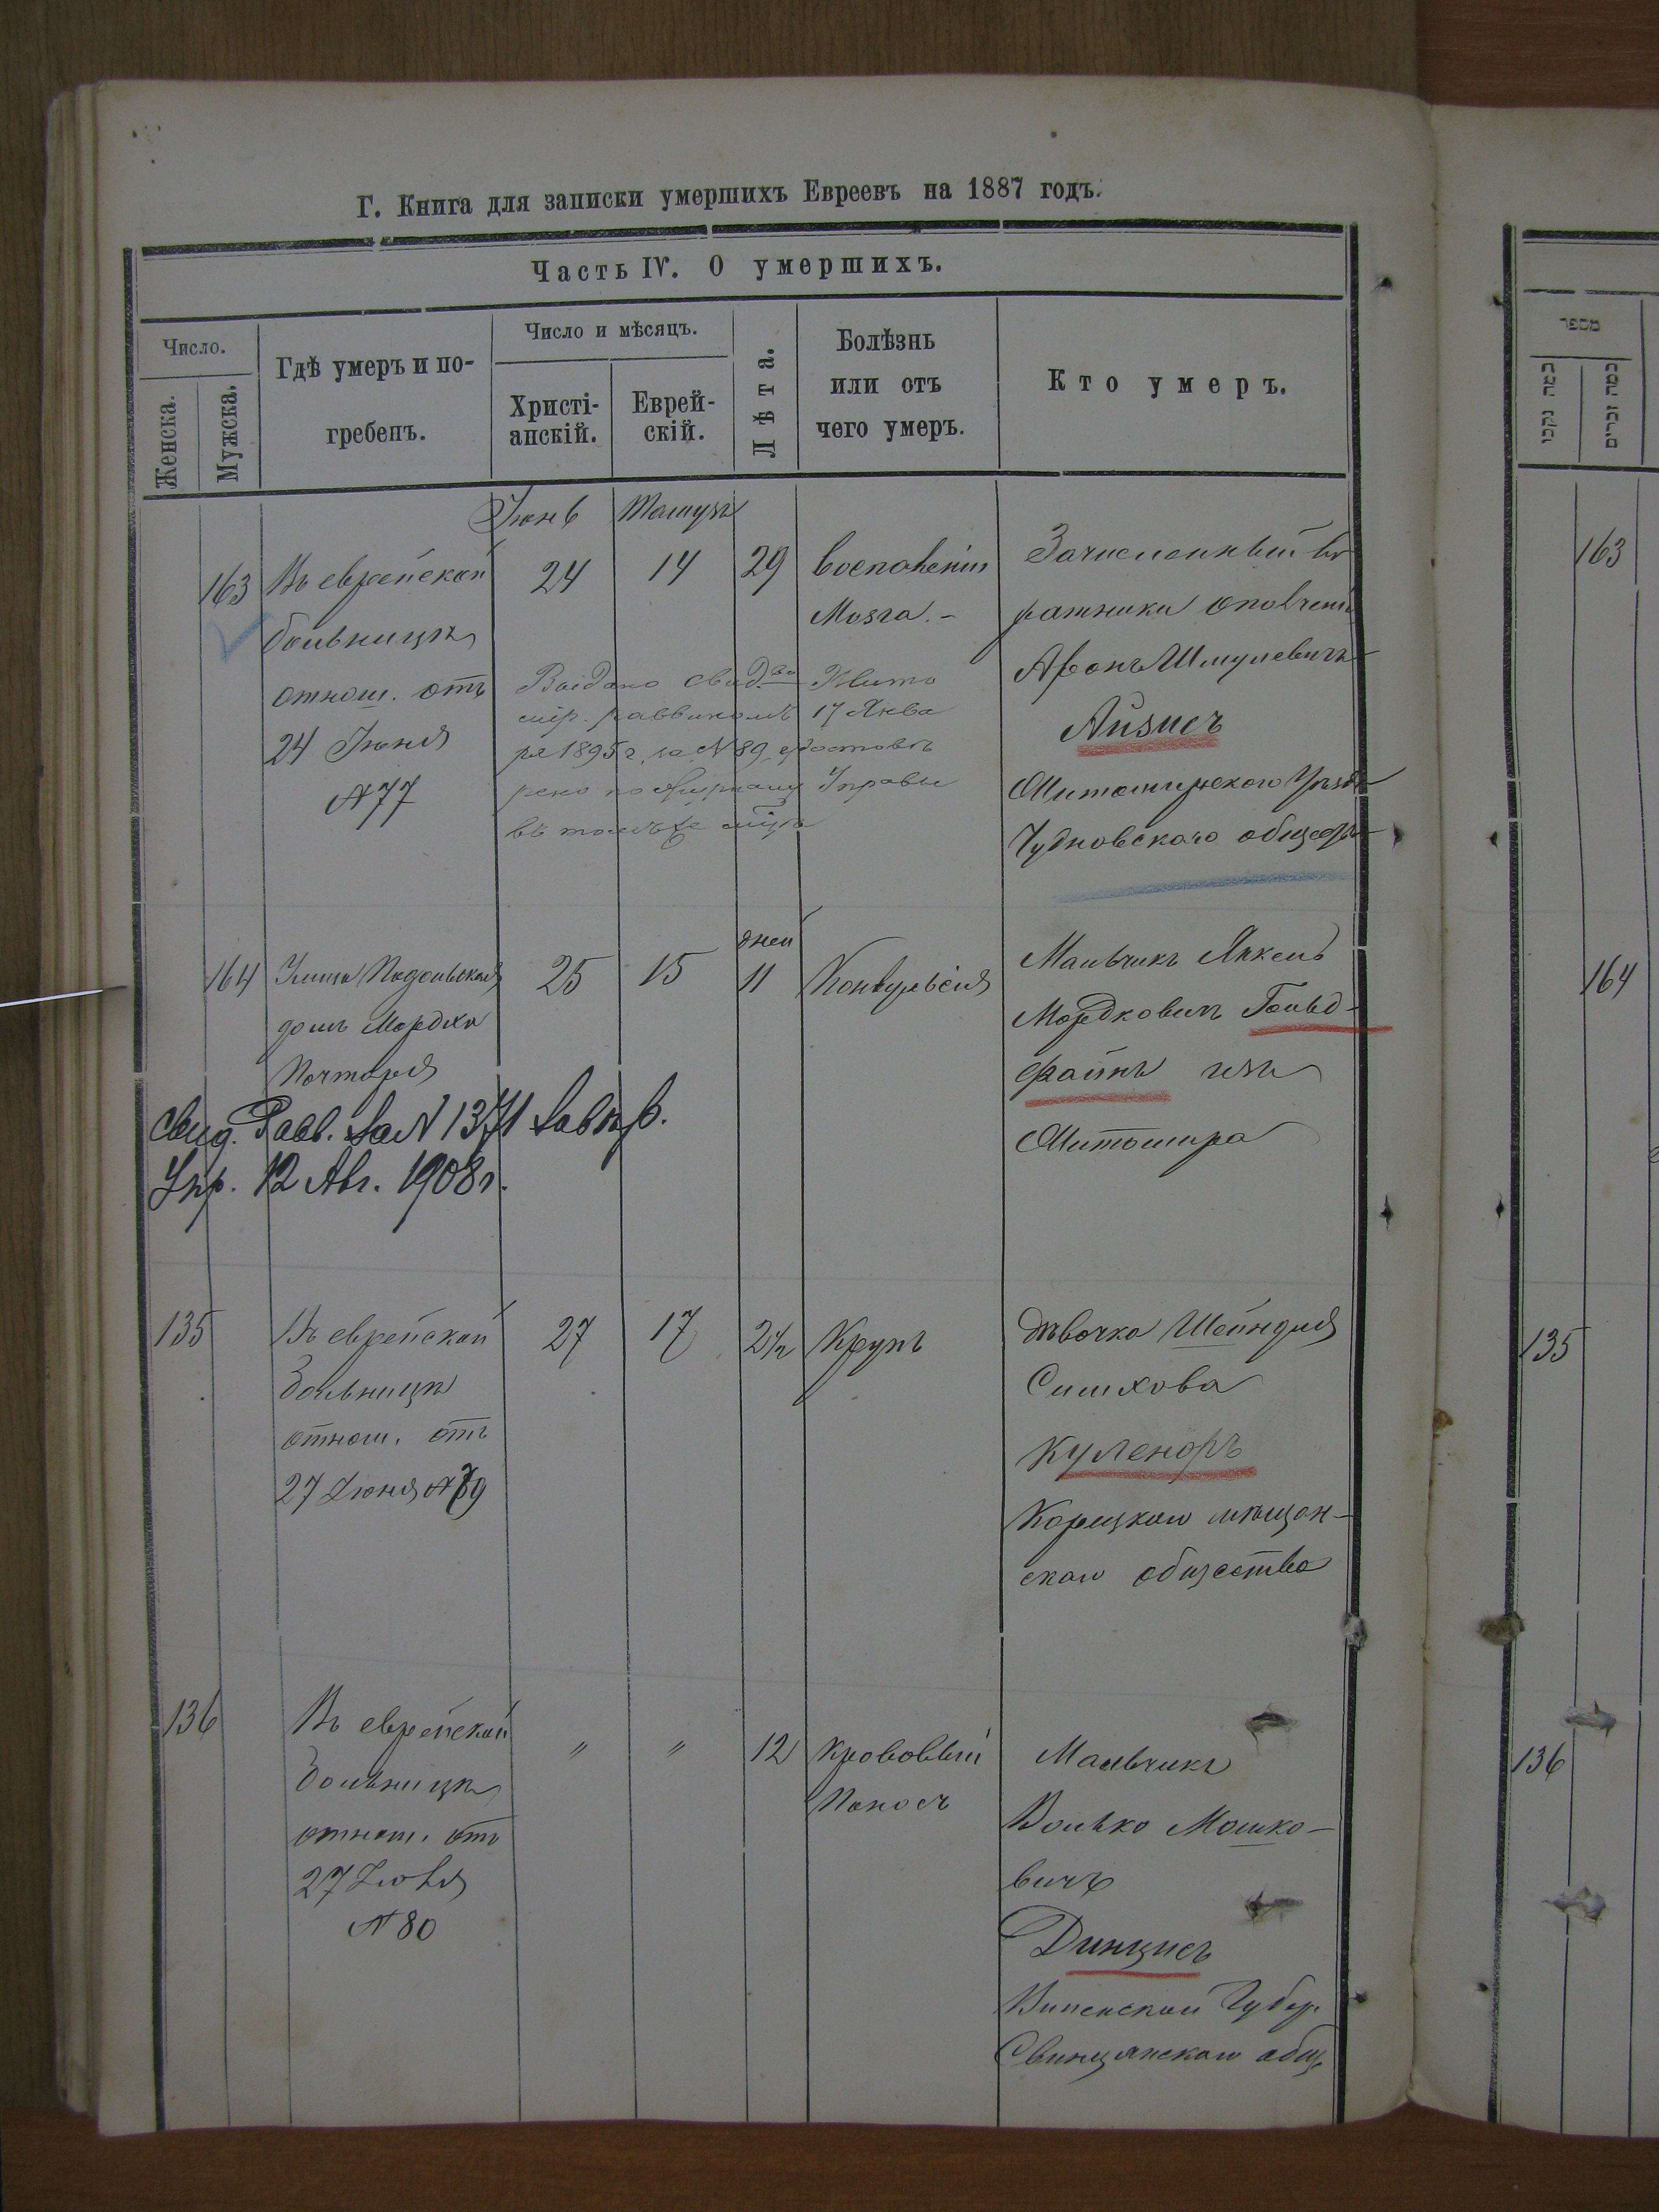 Г. Книга для записки умершихъ Евреевъ на 1887 годъ.
Часть IV. О умершихъ.
Число.
Женска.
Мужска.
Гдѣ умеръ и по-
гребенъ.
Число и мѣсяцъ.
Христі-
анскій.
Еврей-
скій.
Лѣта.
Болѣзнь
или отъ
чего умеръ.
Кто умеръ.
Іюнь
Тамузъ
163
Въ еврейской
больницѣ
отнош. отъ
24 Іюня
№ 77
24
14
29
Воспаленіи
Мозга. -
Зачисленный въ
ратники ополченія
Аронъ Шмулевичъ
Айзисъ
Житомирскаго Уѣзда
Чудновскаго общества
Выдано свид-во Жито
мір. раввиномъ 17 Янва
ря 1895 г. за № 89, удостовѣ
рено по Управы
въ томъ же
164
Улица Подольская
домъ Мордка
Почтаря
25
15
дней
11
Конвульсія
Мальчикъ Янкель
Мордковичъ Гольд-
файнъ изъ
Житомира
Свид. Равв. за № 1371 завѣр.
Упр. 12 Авг. 1908 г.
135
Въ еврейской
больницѣ
отнош. отъ
27 Іюня № 79
27
17
2½
Крупъ
дѣвочка Шейндля
Симхова
Куленоръ
Корецкаго мѣщан-
скаго общества
136
Въ еврейской
больницѣ
отнош. отъ
27 Іюня
№ 80
"
"
12
Крововый
Поносъ
Мальчикъ
Волько Мошко-
вичъ
Динцисъ
Виленской Губер.
Свинцянскаго общ
מספר
כמה נקבו
כמה זכרים
163
164
135
136